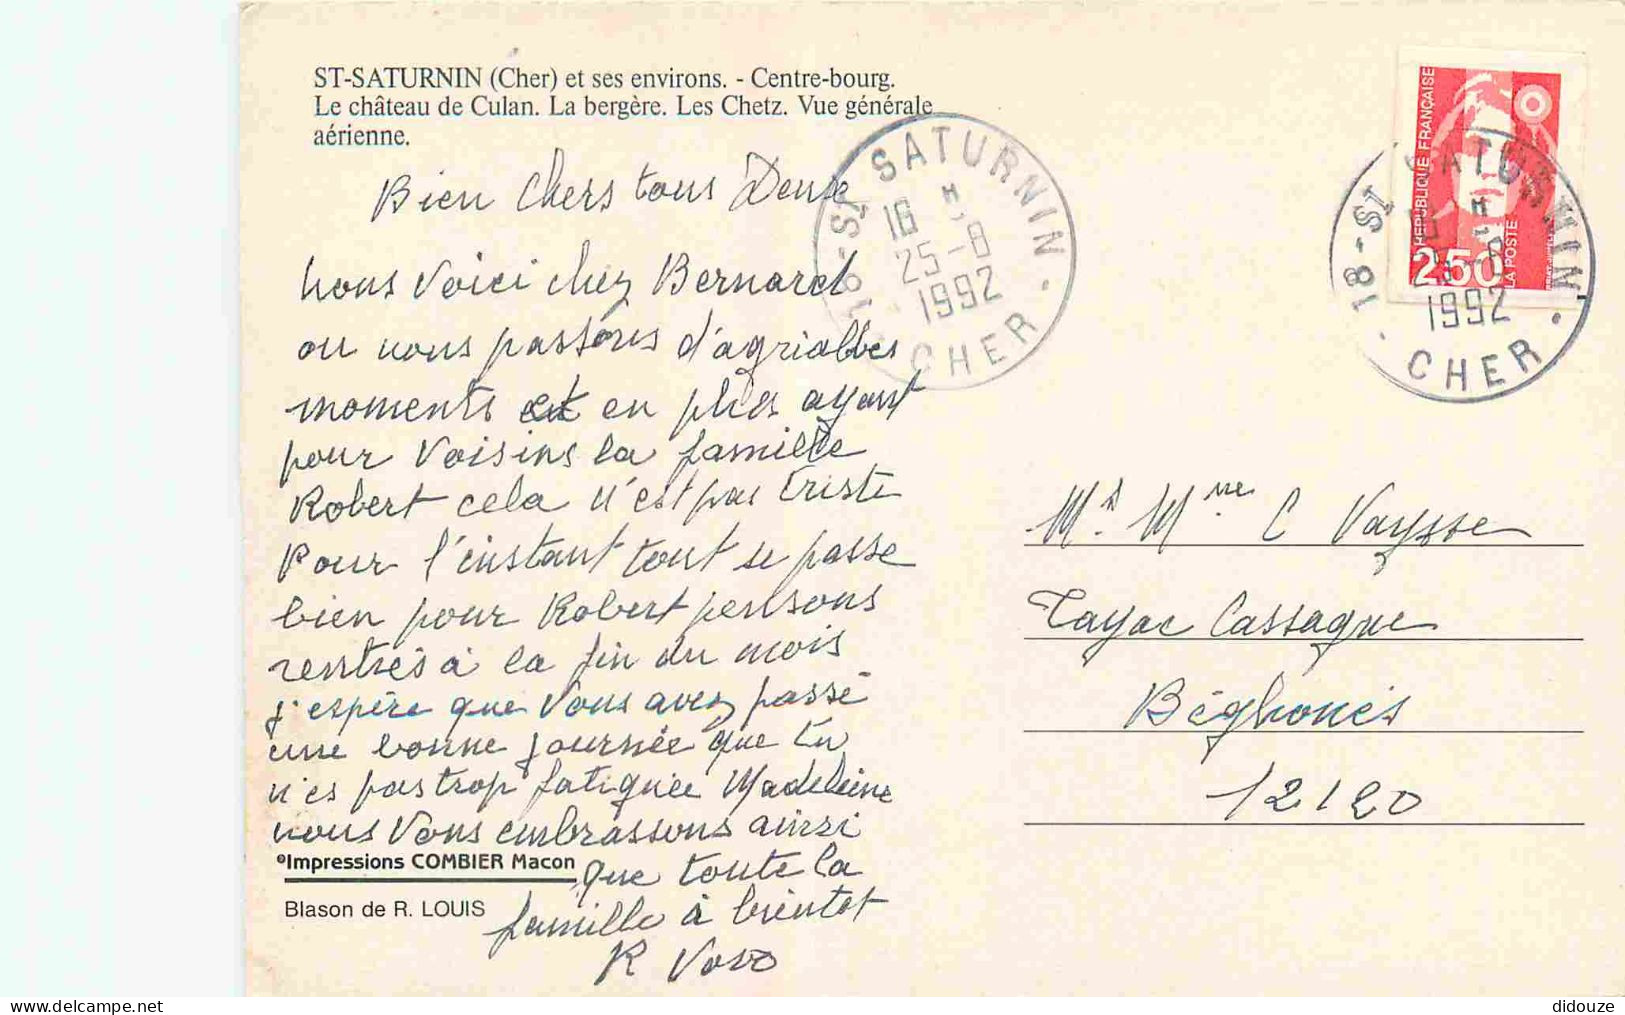 ST-SATURNIN (Cher) et ses environs. - Centre-bourg.
Le château de Culan. La bergère. Les Chetz. Vue générale
aérienne.
Bien Chers tous Deux
nous Voici chez Bernard
ou nous passons d'agriabbes
moments et en plus ayant
pour Voisins la famille
Robert cela n'est pas triste
Pour l'instant tout se passe
bien pour Robert pensons
rentrés à la fin du mois
j'espère que Vous avez passé
une bonne journée que tu
n'es pas trop fatiguée Madeleine
nous Vous embrassons ainsi
que toute la
famille à bientot
R
©Impressions COMBIER Macon
Blason de R. LOUIS
18-ST SATURNIN
16 H
25-8
1992
CHER
RÉPUBLIQUE FRANÇAISE
2,50
LA POSTE
18-ST SATURNIN
1992
CHER
Mr Mme C Vaysse
Tayac Cassagne
Béghonès
12120
didouze